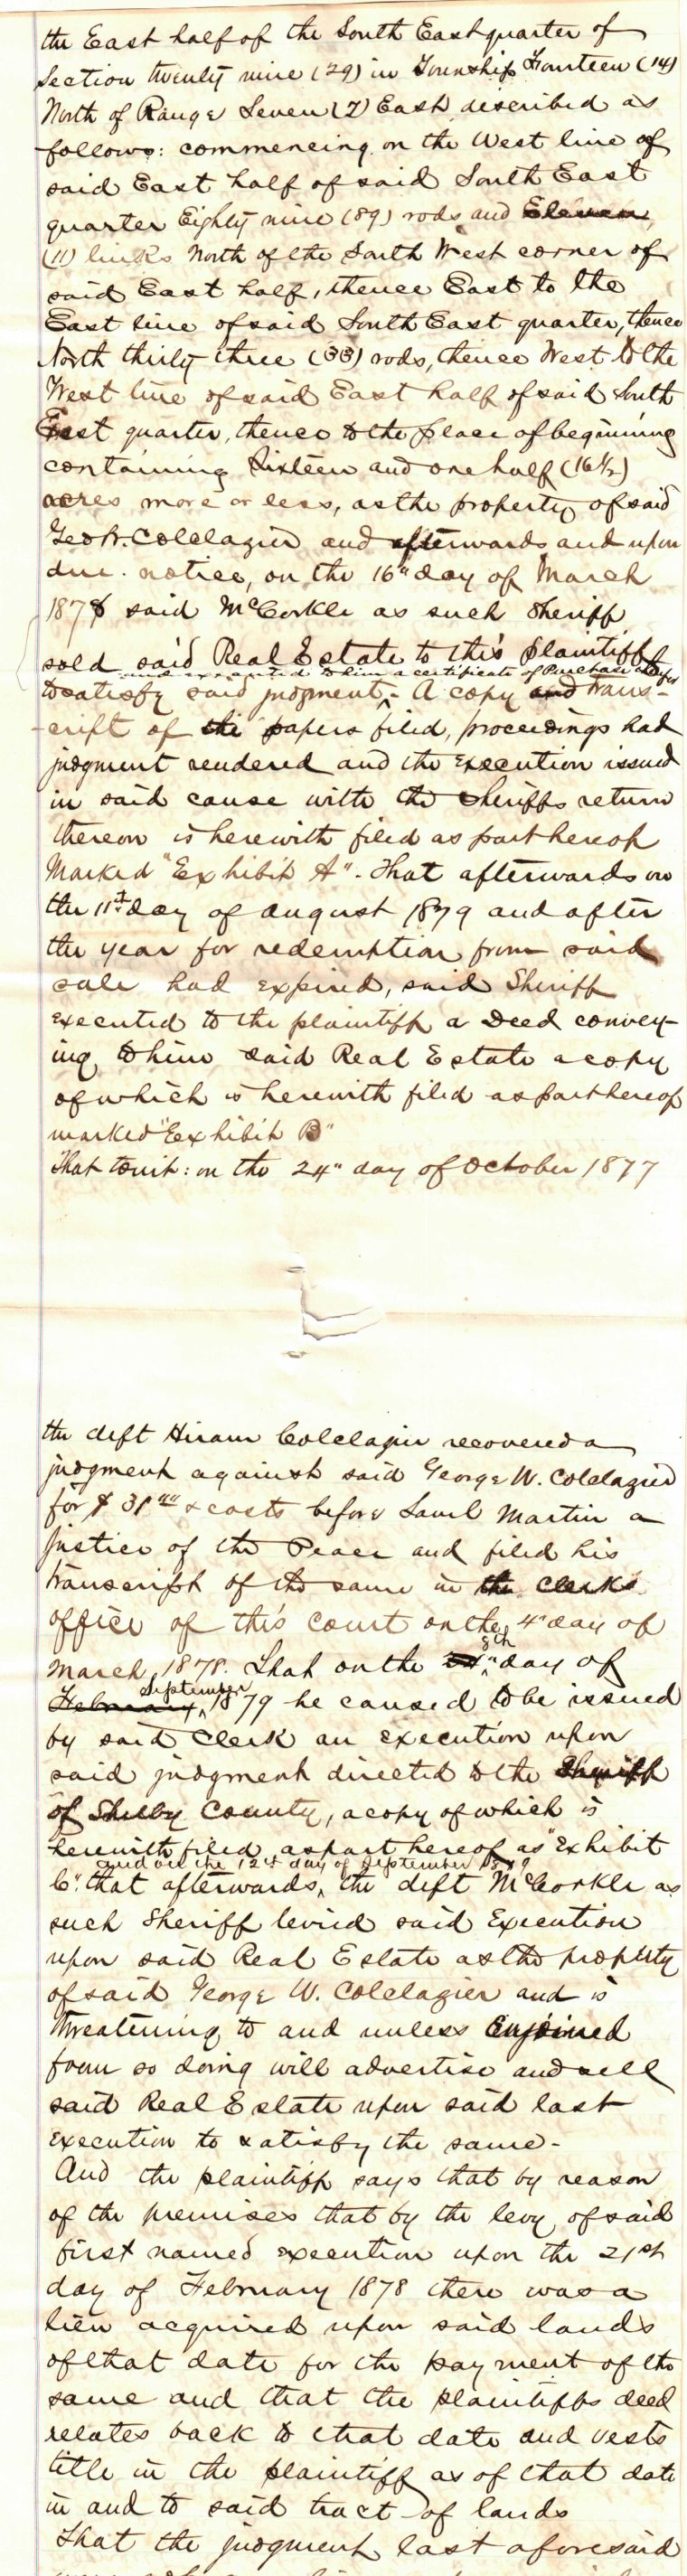 the East half of the South East quarter of
Section twenty nine (29) in Township Fourteen (14)
North of Range Seven (7) East described as
follows: commencing on the West line of
said East half of said South East
quarter Eighty nine (89) rods and Eleven
(11) links North of the South West corner of
said East half, thence East to the
East line of said South East quarter, thence
North thirty three (33) rods, thence West to the
West line of said East half of said South
East quarter, thence to the place of beginning
containing Sixteen and one half (16½)
acres more or less, as the property of said
Geo W. Colclazier and afterwards and upon
due notice, on the 16" day of March
1878 said McCorkle as such Sheriff
sold said Real Estate to this plaintiff
and executed to him a certificate of Purchase
to satisfy said judgment - A copy and trans-
cript of the papers filed, proceedings had
judgment rendered and the Execution issued
in said cause with the Sheriffs return
thereon is herewith filed as part hereof
Marked "Exhibit A". That afterwards on
the 11th day of August 1879 and after
the year for redemption from said
sale had expired, said Sheriff
executed to the plaintiff a Deed convey-
ing to him said Real Estate a copy
of which is herewith filed as part hereof
marked "Exhibit B"
That towit: on the 24" day of October 1877
the deft Hiram Colclazier recovered a
judgment against said George W. Colclazier
for $ & costs before Saml Martin a
Justice of the Peace and filed his
transcript of the same in the clerks
office of this court on the 4" day of
March 1878. That on the 8th day of
September
February, 1879 he caused to be issued
by said Clerk an execution upon
said judgment directed to the Sheriff
of Shelby County, a copy of which is
herewith filed as part hereof as "Exhibit
and on the 12th day of September 1879
C". that afterwards, the deft McCorkle as
such Sheriff levied said Execution
upon said Real Estate as the property
of said George W. Colclazier and is
threatening to and unless Enjoined
from so doing will advertise and sell
said Real Estate upon said last
Execution to satisfy the same -
And the plaintiff says that by reason
of the premises that by the levy of said
first named execution upon the 21st
day of February 1878 there was a
lien acquired upon said lands
of that date for the payment of the
same and that the plaintiffs deed
relates back to that date and vests
title in the plaintiff as of that date
in and to said tract of lands
That the judgment last aforesaid